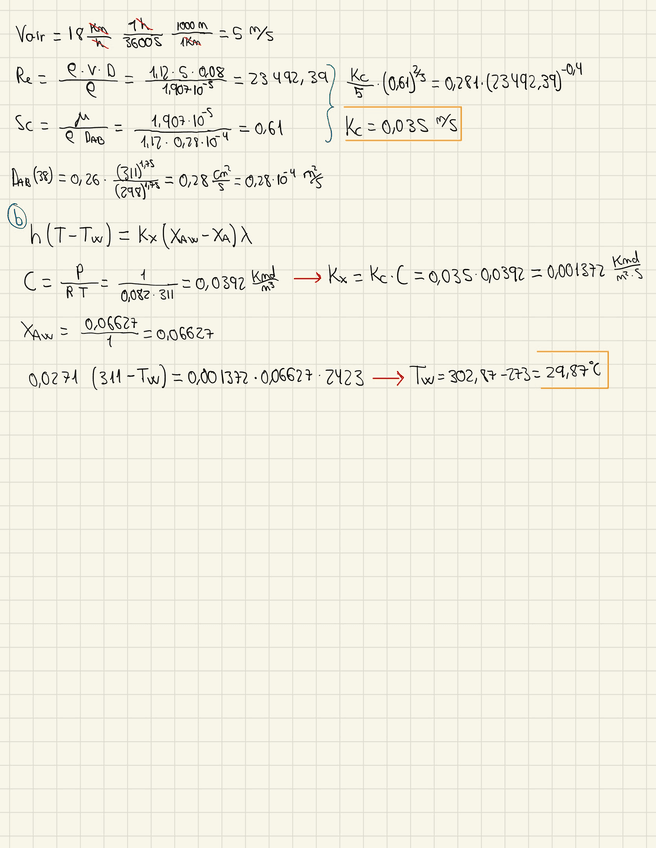 Vair = 18 Km/h · 1h/3600S · 1000 m/1Km = 5 m/s
Re = ρ·V·D/ρ = 1,12·5·0,08/1,907·10⁻⁵ = 23492,39
Kc/5 · (0,61)^2/3 = 0,281·(23492,39)^-0,4
Sc = μ/ρ DAB = 1,907·10⁻⁵/1,12·0,28·10⁻⁴ = 0,61
Kc = 0,035 m/s
DAB (38) = 0,26 · (311)^1,75/(298)^1,75 = 0,28 cm²/s = 0,28·10⁻⁴ m²/s
b
h (T-Tw) = Kx (XAw - XA) λ
C = P/RT = 1/0,082·311 = 0,0392 Kmol/m³ → Kx = Kc·C = 0,035·0,0392 = 0,001372 Kmol/m²·s
XAw = 0,06627/1 = 0,06627
0,0271 (311-Tw) = 0,001372·0,06627·2423 → Tw = 302,87-273 = 29,87°C